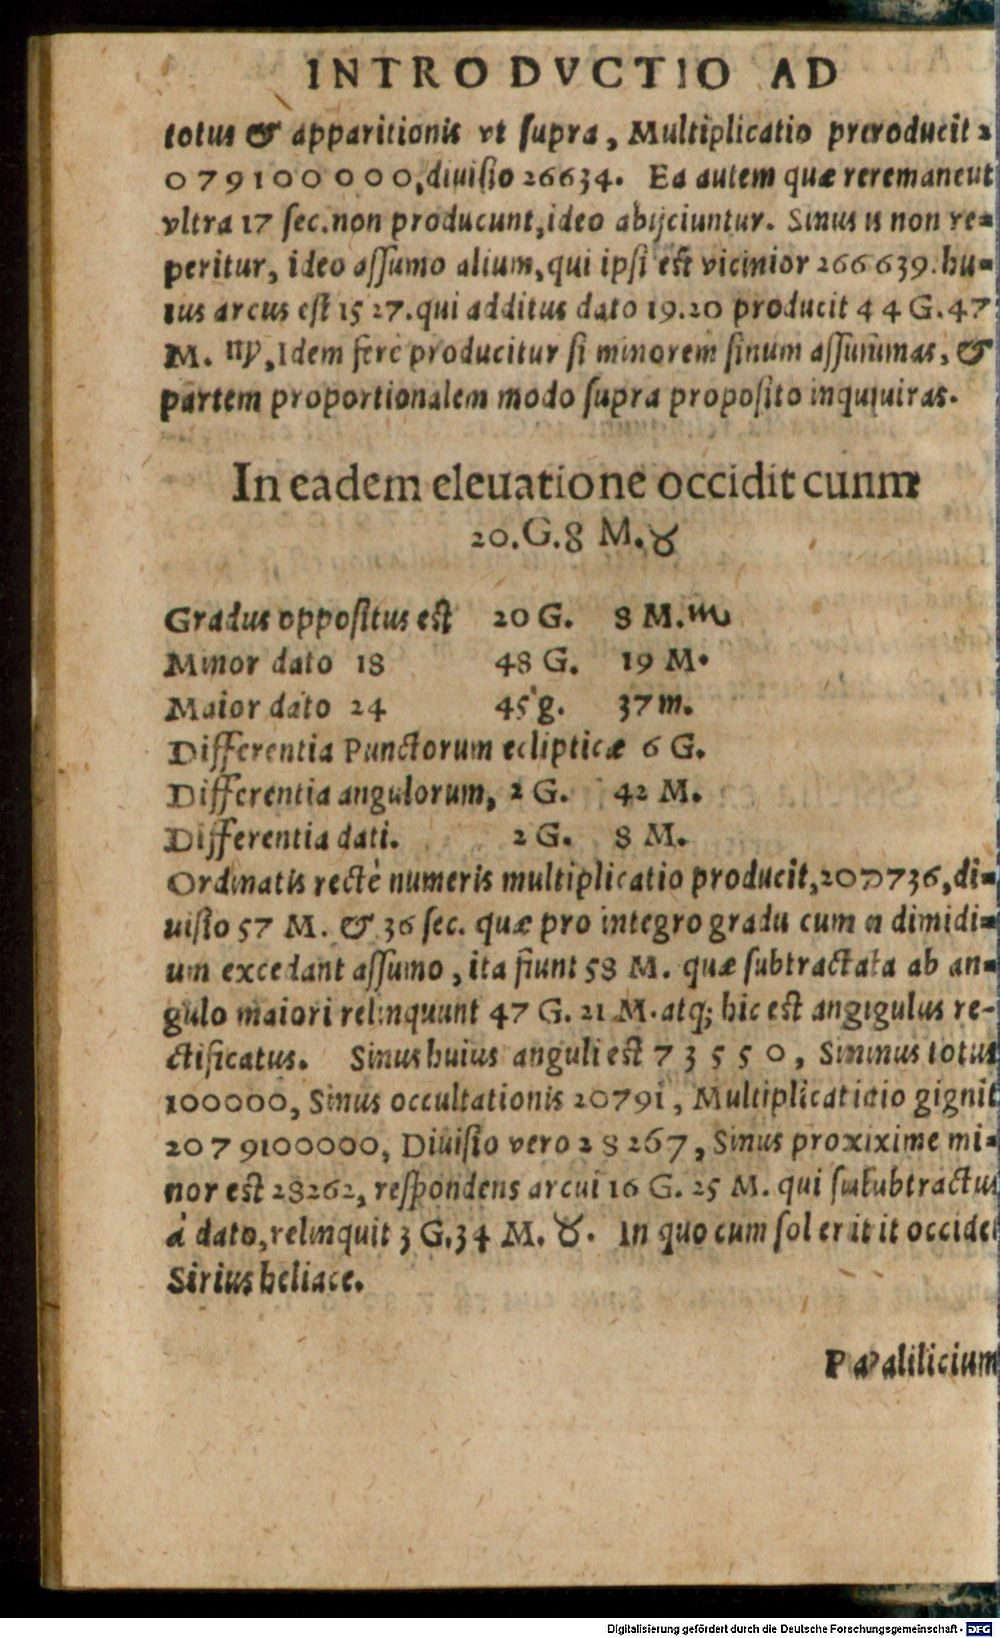 INTRODVCTIO AD
totus & apparitionis vt supra, Multiplicatio preroducit 2
079100000, diuisio 26634. Ea autem quæ reremanent
vltra 17 sec. non producunt, ideo abijciuntur. Sinus is non re-
peritur, ideo assumo alium, qui ipsi est vicinior 266639. hu-
ius arcus est 15 27. qui additus dato 19.20 producit 44 G. 47
M. ♍, Idem ferè producitur si minorem sinum assummas, &
partem proportionalem modo supra proposito inquiuiras.
In eadem eleuatione occidit cunm
20. G. 8 M. ♉
Gradus oppositus est 20 G. 8 M. ♏
Minor dato 18 48 G. 19 M.
Maior dato 24 45 g. 37 m.
Differentia Punctorum eclipticæ 6 G.
Differentia angulorum, 2 G. 42 M.
Differentia dati. 2 G. 8 M.
Ordinatis rectè numeris multiplicatio producit, 207736, di-
uisio 57 M. & 36 sec. quæ pro integro gradu cum a dimidi-
um excedant assumo, ita fiunt 58 M. quæ subtractata ab an-
gulo maiori relinquunt 47 G. 21 M. atq; hic est angigulus re-
ctificatus. Sinus huius anguli est 73550, Sininus totus
100000, Sinus occultationis 20791, Multiplicaticatio gignit
2079100000, Diuisio vero 28267, Sinus proxixime mi-
nor est 28262, respondens arcui 16 G. 25 M. qui sububtractus
à dato, relinquit 3 G. 34 M. ♉. In quo cum sol erit it occidet
Sirius heliace.
Paalilicium
Digitalisierung gefördert durch die Deutsche Forschungsgemeinschaft - DFG